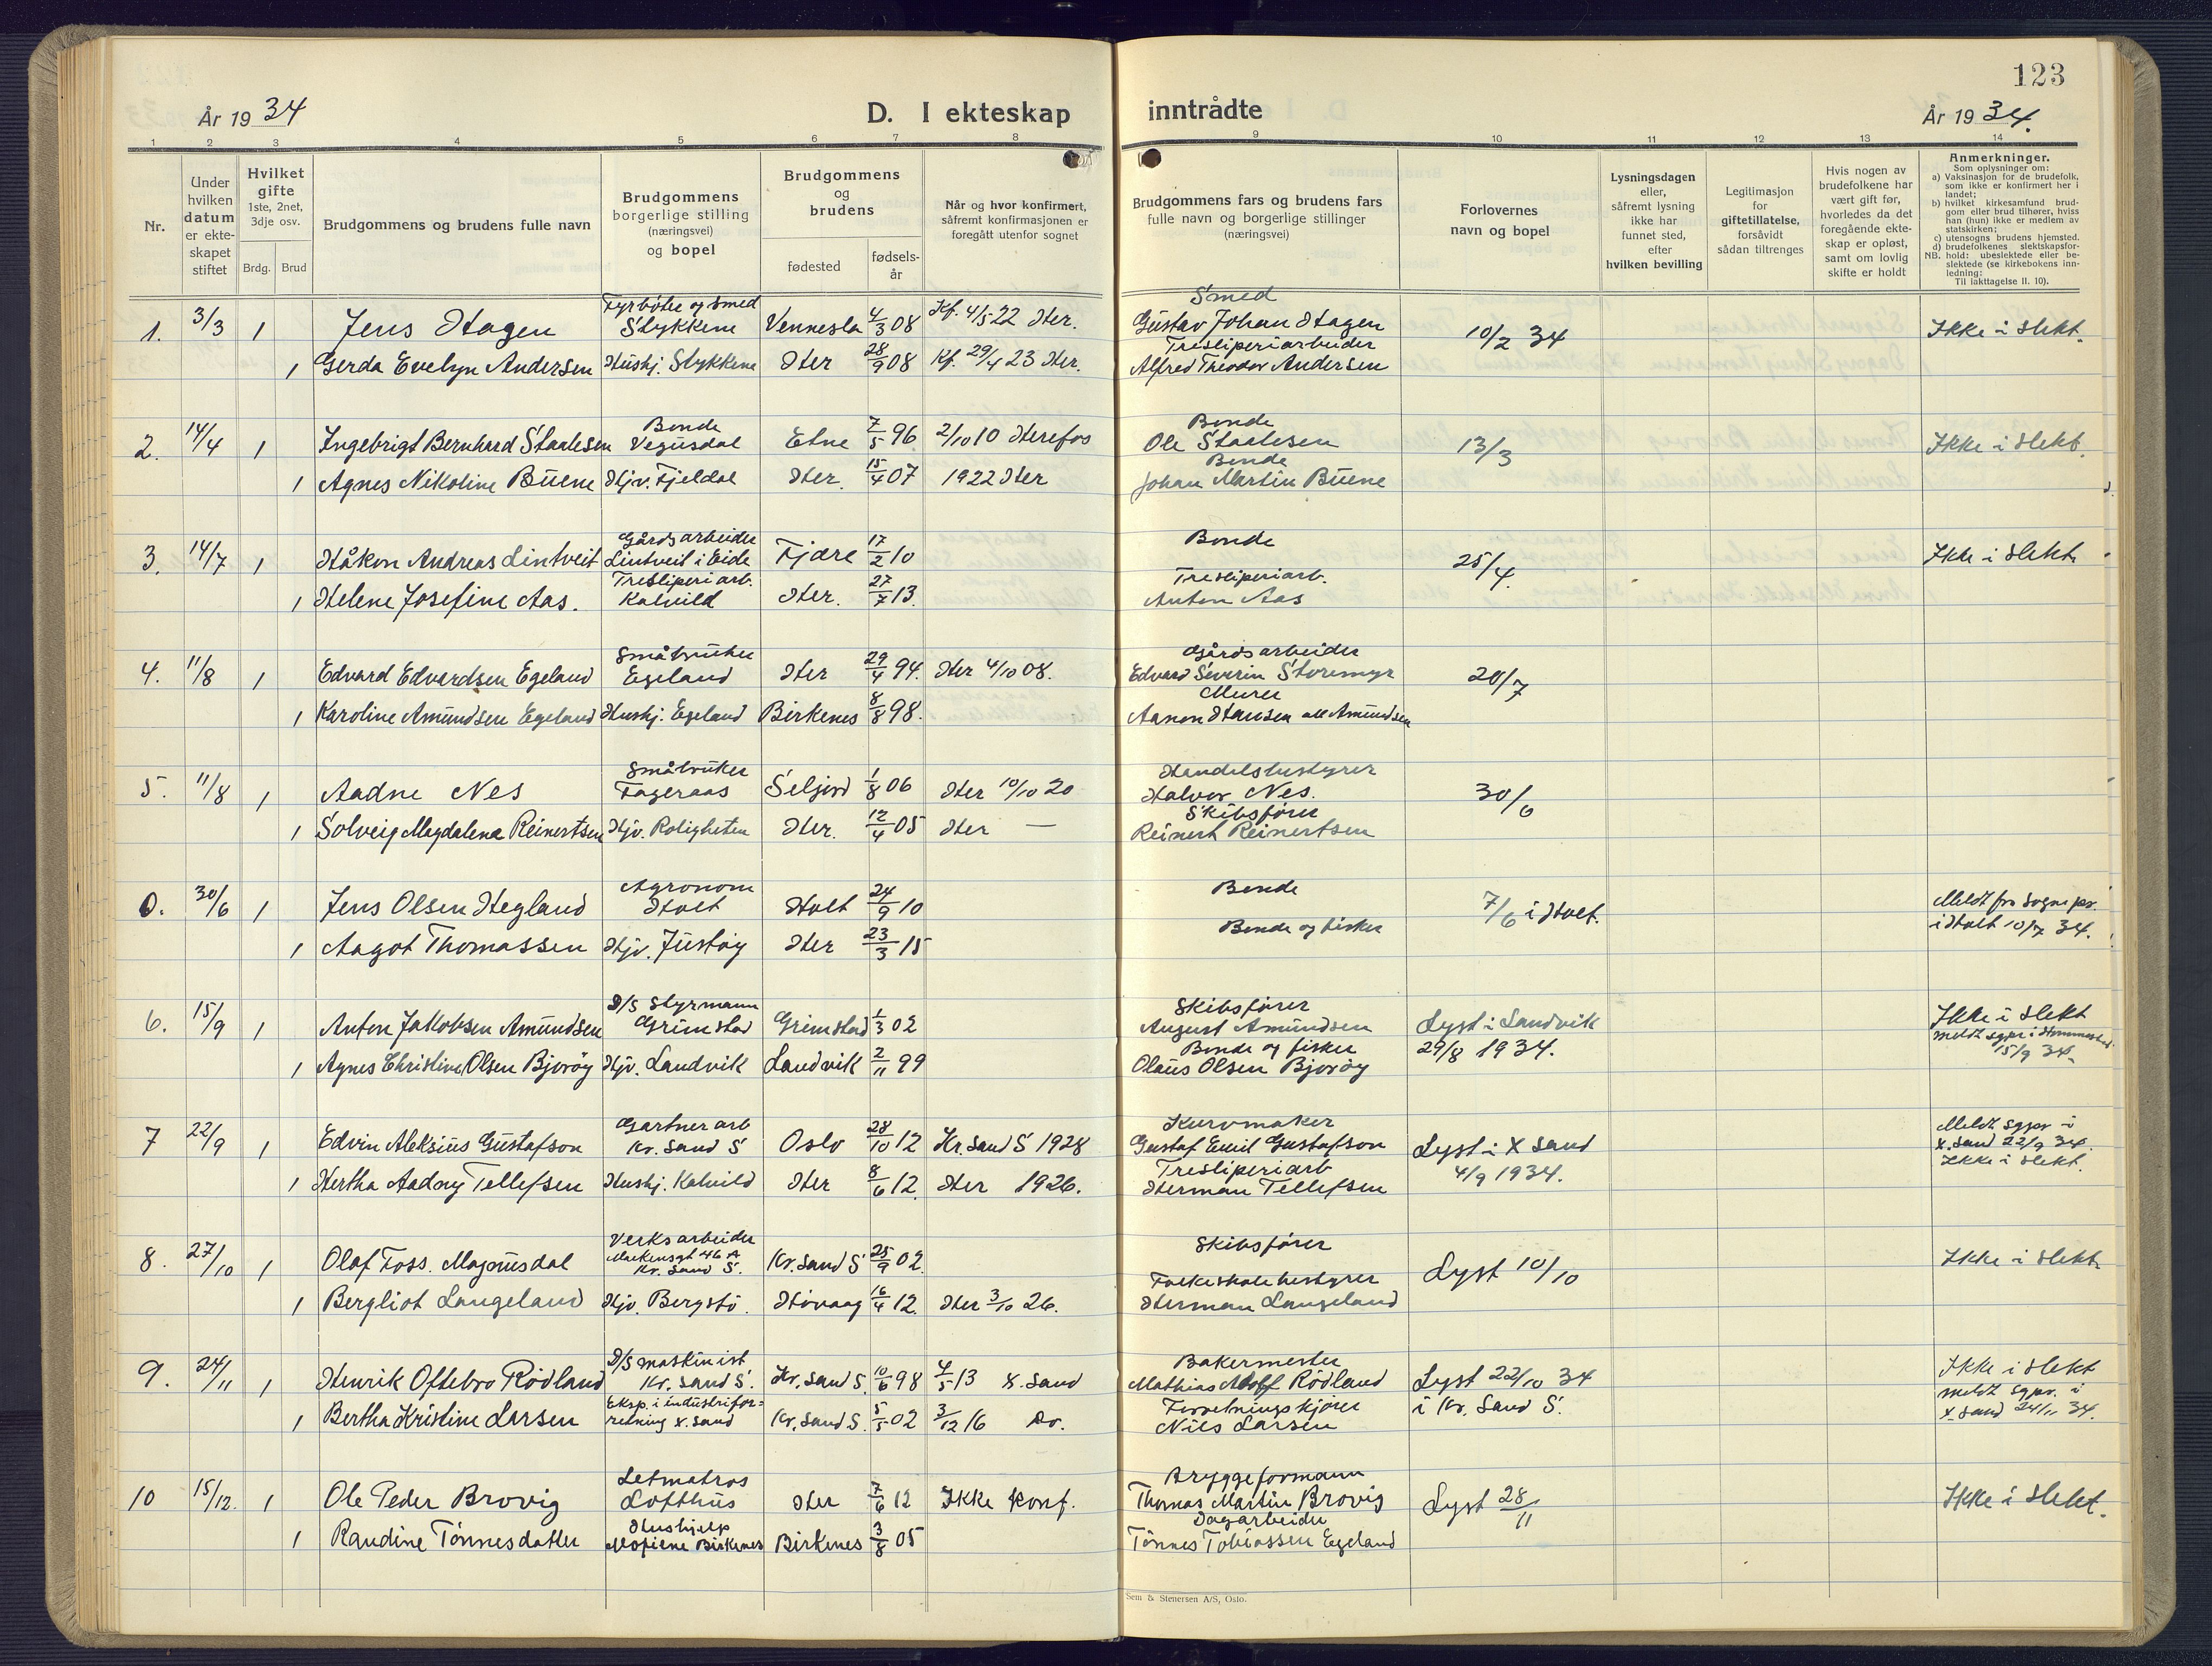 123
År 1934
D. I ekteskap inntrådte
År 1934.
1 2 3 4 5 6 7 8 9 10 11 12 13 14
Nr.
Under hvilken datum er ekte-skapet stiftet
Hvilket gifte 1ste, 2net, 3dje osv.
Brdg. Brud
Brudgommens og brudens fulle navn
Brudgommens borgerlige stilling (næringsvei) og bopel
Brudgommens og brudens
fødested
fødsels-år
Når og hvor konfirmert, såfremt konfirmasjonen er foregått utenfor sognet
Brudgommens fars og brudens fars fulle navn og borgerlige stillinger (næringsvei)
Forlovernes navn og bopel
Lysningsdagen eller, såfremt lysning ikke har funnet sted, efter hvilken bevilling
Legitimasjon for giftetillatelse, forsåvidt sådan tiltrenges
Hvis nogen av brudefolkene har vært gift før, hvorledes da det foregående ekte-skap er opløst, samt om lovlig skifte er holdt
Anmerkninger.
Som oplysninger om:
a) Vaksinasjon for de brudefolk, som ikke er konfirmert her i landet;
b) hvilket kirkesamfund brud-gom eller brud tilhører, hviss han (hun) ikke er medlem av statskirken;
c) utensogns brudens hjemsted.
d) brudefolkenes slektskapsfor-hold: ubeslektede eller be-slektede (se kirkebokens inn-ledning:
NB. Til iakttagelse II. 10).
Fyrbøter og smed Smed
1. 3/3 1 Jens Hagen Stykkene Vennesla 4/3 08 Kf. 4/5 22 Her. Gustav Johan Hagen 10/2 34 Ikke i slekt.
Tresliperiarbeider
1 Gerda Evelyn Andersen Hushj. Stykkene Her 28/9 08 Kf. 29/4 23 Her. Alfred Theodor Andersen
Bonde Bonde
2. 14/4 1 Ingebrigt Bernhard Staalesen Vegusdal Etne 7/5 96 2/10 10 Herefos Ole Staalesen 13/3 Ikke i slekt.
Bonde
1 Agnes Nikoline Buene Hjv. Fjeldal Her. 15/4 07 1922 Her Johan Martin Buene
Gårdsarbeider Bonde
3. 14/7 1 Håkon Andreas Lintveit Lintveit i Eide Fjære 17/2 10 25/4. Ikke i slekt.
Tresliperiarb. Tresliperiarb.
1 Helene Josefine Aas. Kalvild Her. 27/7 13. Anton Aas
Småbruker Gårdsarbeider
4. 11/8 1 Edvard Edvardsen Egeland Egeland Her 29/4 94. Her 4/10 08. Edvard Severin Storemyr 20/7
Murer
1 Karoline Amundsen Egeland Hushj. Egeland Birkenes 8/8 98. Aanon Hansen all Amundsen
Småbruker Handelsbestyrer
5. 11/8 1 Aadne Nes Fageraas Seljord 1/8 06 Her 10/10 20 Halvor Nes. 30/6
Skibsfører
1 Solveig Magdalena Reinertsen Hjv. Roligheten Her. 12/4 05 Her — Reinert Reinertsen
Agronom Bonde
0. 30/6 1 Jens Olsen Hegland Holt Holt 24/9 10 7/6 i Holt. Meldt fra sognepr.
Bonde og fisker i Holt 10/7 34.
1 Aagot Thomassen Hjv. Justøy Her 23/3 15
D/S Styrmann Skibsfører
6. 15/9 1 Anton Jakobsen Amundsen Grimstad Grimstad 1/3 02 August Amundsen Lyst i Landvik Ikke i slekt
Bonde og fisker 29/8 1934. meldt sgpr i Hommedal 15/9 34.
1 Agnes Christine Olsen Bjorøy Hjv. Landvik Landvik 2/11 99 Olaus Olsen Bjorøy
Gartnerarb Kurvmaker
7 22/9 1 Edvin Aleksius Gustafson Kr. Sand S Oslo 28/10 12 Kr. Sand S 1928 Gustaf Emil Gustafson Lyst i X sand Meldt sgpr i X. Sand 22/9 34.
Tresliperiarb 4/9 1934. Ikke i slekt.
1 Hertha Aadny Tellefsen Hushj. Kalvild Her 8/6 12. Her 1926. Herman Tellefsen
Verksarbeider Skibsfører
8. 27/10 1 Olaf Foss. Magnusdal Markensgt 46 A Kr. Sand S. Kr. Sand S 25/9 02. Lyst 10/10 Ikke i slekt.
Folkeskolebestyrer
1 Bergliot Langeland Hjv. Bergstø. Høvaag 16/4 12. Her 3/10 26. Herman Langeland
D/S maskinist Bakermester
9. 24/11 1 Henrik Oftebro Rødland Kr. Sand S. Kr. Sand S. 10/6 98 4/5 13 X. Sand Mathias Adolf Rødland Lyst 22/10 34 Ikke i slekt
Eksp. i industrifor- Forretningskjører i Kr. Sand S. meldt sgpr. i
1 Bertha Kristine Larsen retning X. Sand Kr. Sand S. 5/5 02 3/12 16 Do. Nils Larsen X. Sand 24/11 34.
Letmatros Bryggeformann
10 15/12. 1 Ole Peder Brovig Lofthus Her 7/6 12 Ikke konf. Thomas Martin Brovig Lyst 28/11 Ikke i slekt.
Hushjelp Dagarbeider
1 Randine Tønnesdatter Birkenes Birkenes 3/8 05 Tønnes Tobiassen Egeland
Sem & Stenersen A/S, Oslo.